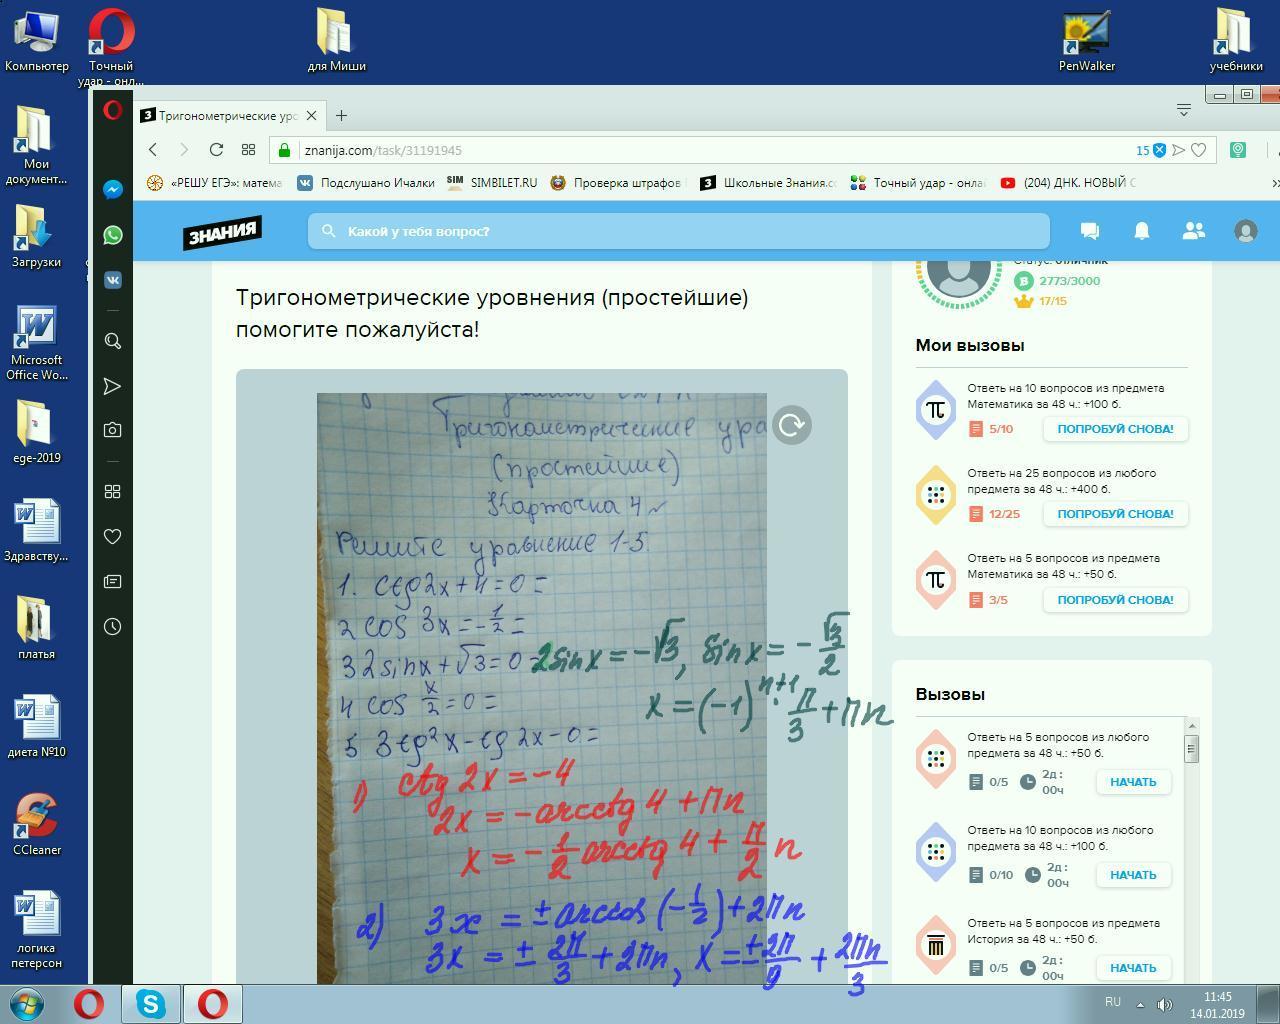 Компьютер
Точный
удар - онл...
для Миши
PenWalker
учебники
Мои
документ...
Загрузки
Microsoft
Office Wo...
ege-2019
Здравству...
платья
диета №10
CCleaner
логика
петерсон
Тригонометрические уро
znanija.com/task/31191945
15
«РЕШУ ЕГЭ»: матема
Подслушано Ичалки
SIM SIMBILET.RU
Проверка штрафов
Школьные Знания.cо
Точный удар - онлай
(204) ДНК. НОВЫЙ С
ЗНАНИЯ
Какой у тебя вопрос?
Тригонометрические уровнения (простейшие)
помогите пожалуйста!
Тригонометричиские ура
(простейшие)
Карточка 4
Решите уравнение 1-5.
1. ctg 2x + 4 = 0 =
2 cos 3x = -1/2 =
3 2 sinx + √3 = 0 =
2sinx = -√3, sinx = -√3/2
x = (-1)^{n+1} · π/3 + πn
4 cos x/2 = 0 =
5 3tg² x - tg 2x - 0 =
1) ctg 2x = -4
2x = -arcctg 4 + πn
x = -1/2 arcctg 4 + π/2 n
2) 3x = ± arccos (-1/2) + 2πn
3x = ± 2π/3 + 2πn, x = ± 2π/9 + 2πn/3
Статус: отличник
2773/3000
17/15
Мои вызовы
Ответь на 10 вопросов из предмета
Математика за 48 ч.: +100 б.
5/10
ПОПРОБУЙ СНОВА!
Ответь на 25 вопросов из любого
предмета за 48 ч.: +400 б.
12/25
ПОПРОБУЙ СНОВА!
Ответь на 5 вопросов из предмета
Математика за 48 ч.: +50 б.
3/5
ПОПРОБУЙ СНОВА!
Вызовы
Ответь на 5 вопросов из любого
предмета за 48 ч.: +50 б.
0/5
2д :
00ч
НАЧАТЬ
Ответь на 10 вопросов из любого
предмета за 48 ч.: +100 б.
0/10
2д :
00ч
НАЧАТЬ
Ответь на 5 вопросов из предмета
История за 48 ч.: +50 б.
0/5
2д :
00ч
НАЧАТЬ
RU
11:45
14.01.2019